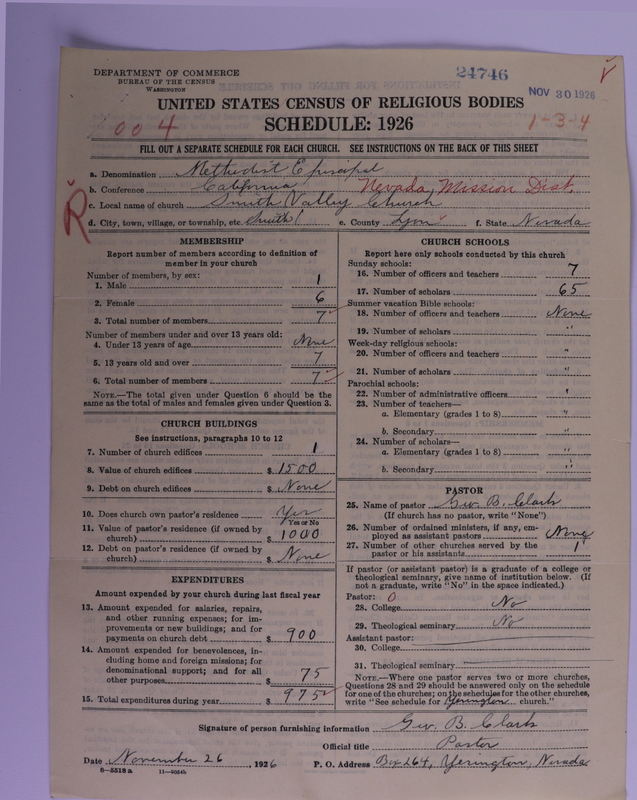 DEPARTMENT OF COMMERCE
BUREAU OF THE CENSUS
WASHINGTON
24746
NOV 30 1926
UNITED STATES CENSUS OF RELIGIOUS BODIES
SCHEDULE: 1926
004
1-3-4
FILL OUT A SEPARATE SCHEDULE FOR EACH CHURCH. SEE INSTRUCTIONS ON THE BACK OF THIS SHEET
a. Denomination Methodist Episcopal
b. Conference California Nevada Mission Dist.
c. Local name of church Smith Valley Church
R
d. City, town, village, or township, etc. Smith e. County Lyon f. State Nevada
MEMBERSHIP
Report number of members according to definition of
member in your church
Number of members, by sex:
1. Male 1
2. Female 6
3. Total number of members 7
Number of members under and over 13 years old:
4. Under 13 years of age None
5. 13 years old and over 7
6. Total number of members 7
NOTE.—The total given under Question 6 should be
same as the total of males and females given under Question 3.
CHURCH BUILDINGS
See instructions, paragraphs 10 to 12
7. Number of church edifices 1
8. Value of church edifices $ 1500
9. Debt on church edifices $ None
10. Does church own pastor's residence Yes
Yes or No
11. Value of pastor's residence (if owned by
church) $ 1000
12. Debt on pastor's residence (if owned by
church) $ None
EXPENDITURES
Amount expended by your church during last fiscal year
13. Amount expended for salaries, repairs,
and other running expenses; for im-
provements or new buildings; and for
payments on church debt $ 900
14. Amount expended for benevolences, in-
cluding home and foreign missions; for
denominational support; and for all
other purposes $ 75
15. Total expenditures during year $ 975
CHURCH SCHOOLS
Report here only schools conducted by this church
Sunday schools:
16. Number of officers and teachers 7
17. Number of scholars 65
Summer vacation Bible schools:
18. Number of officers and teachers None
19. Number of scholars "
Week-day religious schools:
20. Number of officers and teachers "
21. Number of scholars "
Parochial schools:
22. Number of administrative officers "
23. Number of teachers—
a. Elementary (grades 1 to 8) "
b. Secondary "
24. Number of scholars—
a. Elementary (grades 1 to 8) "
b. Secondary "
PASTOR
25. Name of pastor Geo. B. Clark
(If church has no pastor, write "None")
26. Number of ordained ministers, if any, em-
ployed as assistant pastors None
27. Number of other churches served by the
pastor or his assistants 1
If pastor (or assistant pastor) is a graduate of a college or
theological seminary, give name of institution below. (If
not a graduate, write "No" in the space indicated.)
Pastor: 0
28. College No
29. Theological seminary No
Assistant pastor:
30. College
31. Theological seminary
NOTE.—Where one pastor serves two or more churches,
Questions 28 and 29 should be answered only on the schedule
for one of the churches; on the schedules for the other churches,
write "See schedule for Yerington church."
Signature of person furnishing information Geo. B. Clark
Official title Pastor
Date November 26, 1926 P. O. Address Box 264, Yerington, Nevada
8—5518a 11—9024b